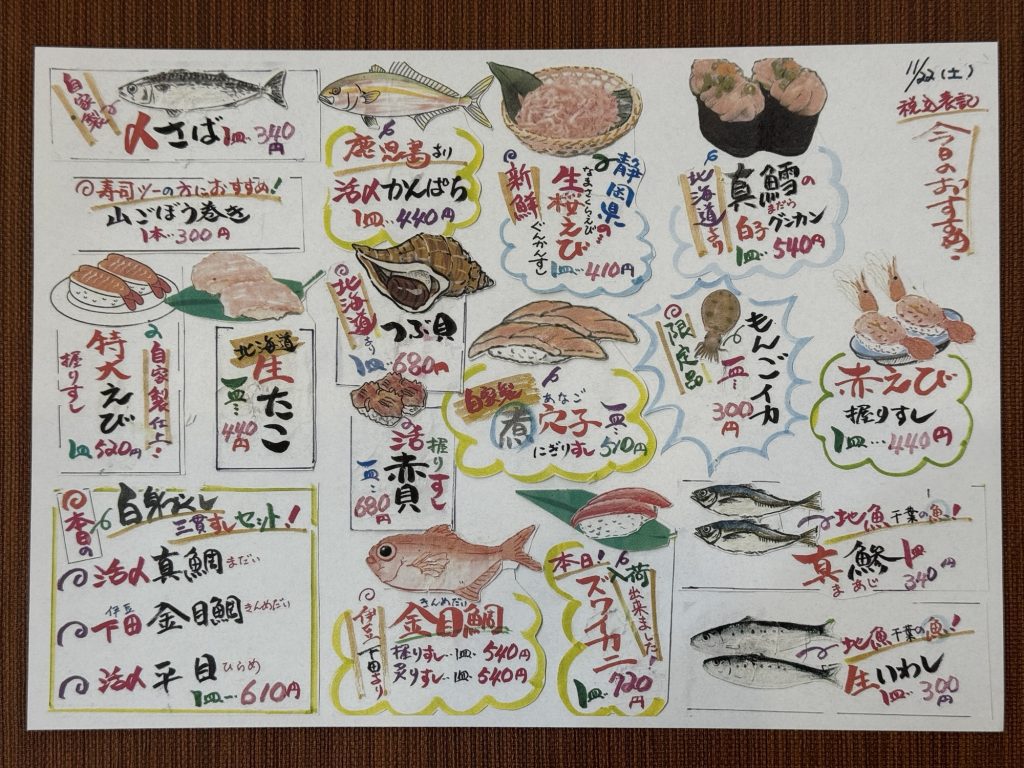 11/22(土)
税込表記
今日のおすすめ
北海道より
真鱈の
まだら
白子グンカン
540円
静岡県の
なまさくらえび
生桜えび
ぐんかんずし
新鮮
1皿…410円
鹿児島より
活〆かんぱち
1皿…440円
自家製
〆さば 1皿…340円
寿司ツーの方におすすめ!
山ごぼう巻き
1本…300円
赤えび
握りすし
1皿…440円
限定品
もんごイカ
一皿…
300円
自家製
煮
あなご
穴子
にぎりすし
一皿…510円
北海道より
つぶ貝
1皿…680円
握りすし
活赤貝
一皿…
680円
北海道
生たこ
一皿…
440円
自家製仕上
特大えび
握りすし
1皿520円
本日の
白身づくし
三貫すしセット!
活〆真鯛 まだい
伊豆
下田 金目鯛 きんめだい
活〆平目 ひらめ
1皿…610円
伊豆下田より
きんめだい
金目鯛
握りすし…1皿…540円
炙りすし…1皿…540円
本日!
入荷出来ました!
ズワイカニ
1皿…720円
地魚 千葉の魚!
真鯵 1皿
まあじ
340円
地魚 千葉の魚!
生いわし
1皿…300円